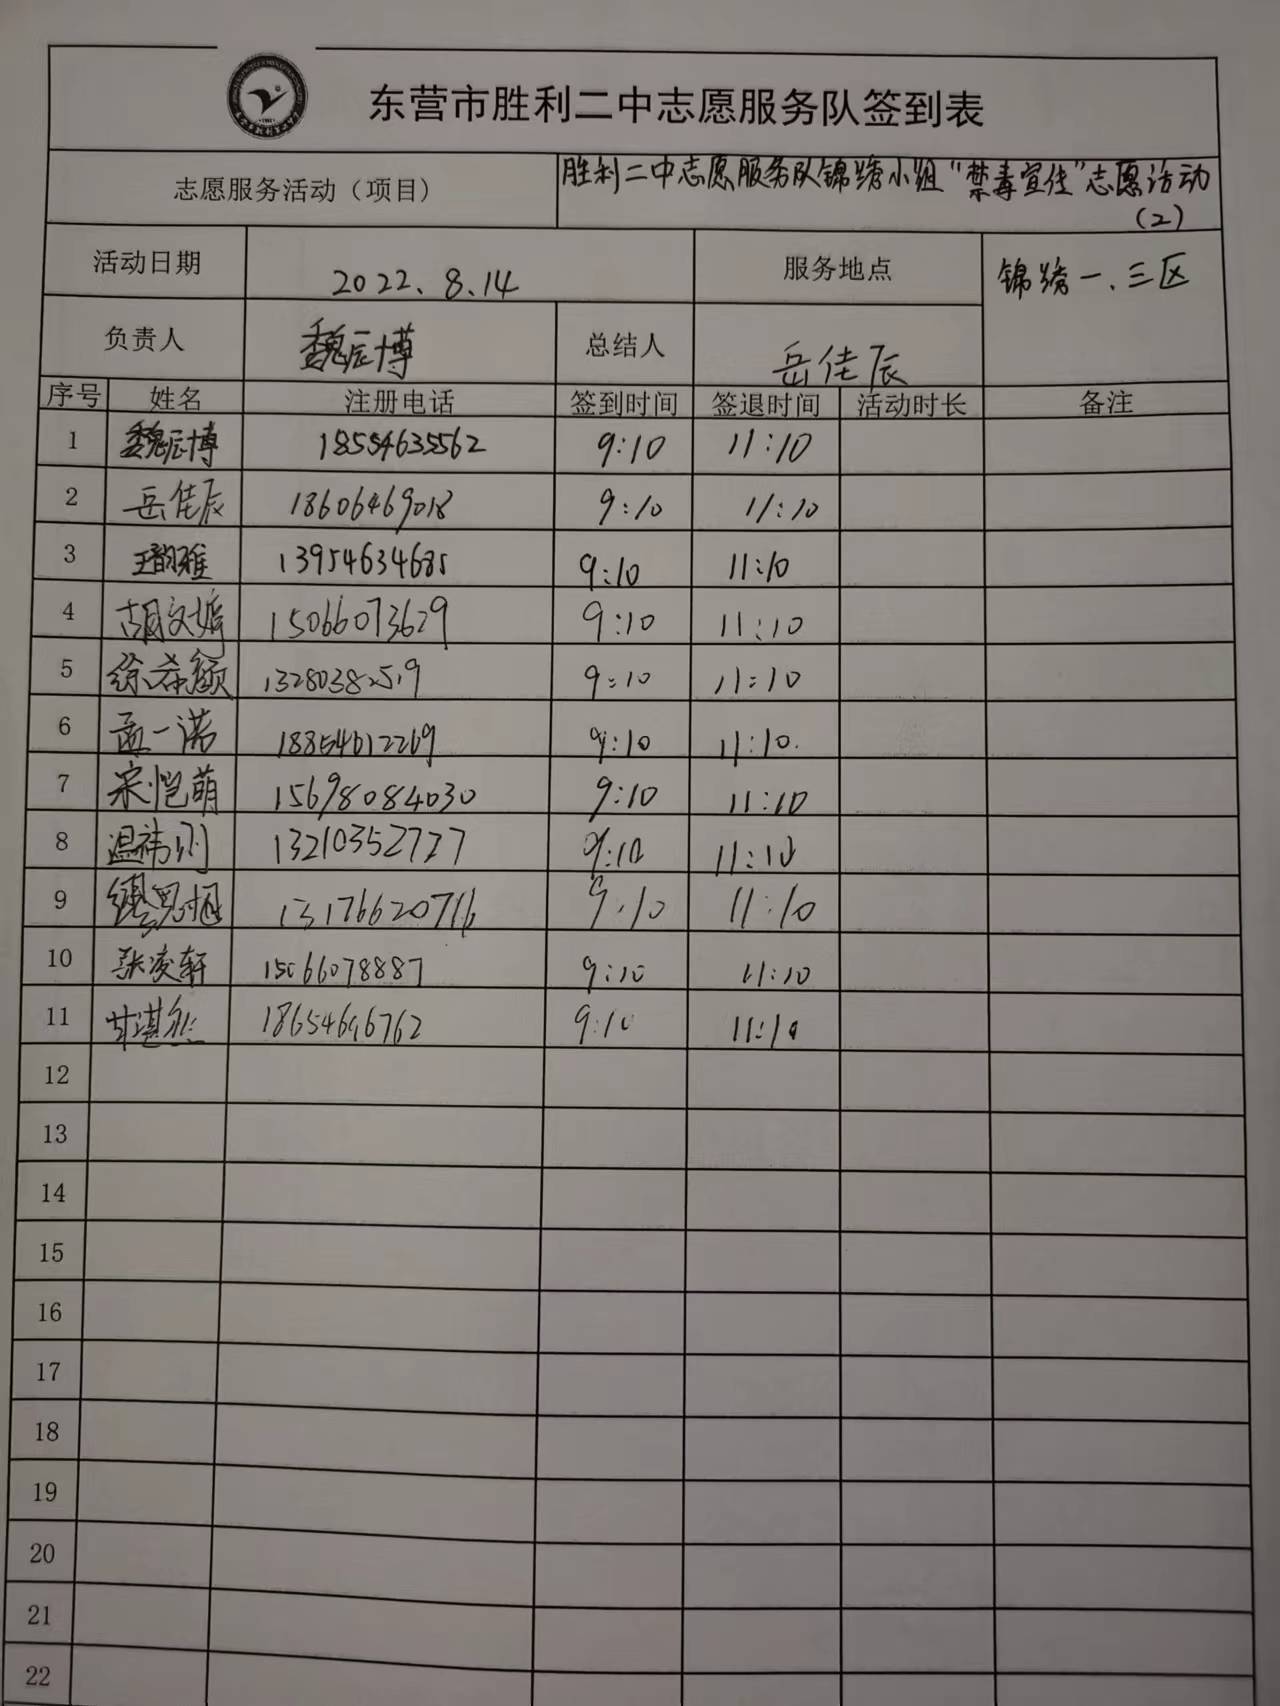 东营市胜利二中志愿服务队签到表
志愿服务活动（项目） 胜利二中志愿服务队锦绣小组“禁毒宣传”志愿活动
（2）
活动日期 2022.8.14 服务地点 锦绣一、三区
负责人 魏辰博 总结人 岳佳辰
序号 姓名 注册电话 签到时间 签退时间 活动时长 备注
1 魏辰博 18554635562 9:10 11:10
2 岳佳辰 18606469018 9:10 11:10
3 王韵雅 13954634685 9:10 11:10
4 胡文婷 15066073629 9:10 11:10
5 徐希颜 13280382519 9:10 11:10
6 孟一诺 18854612269 9:10 11:10
7 宋恺萌 15698084030 9:10 11:10
8 13210352727 9:10 11:10
9 13176620716 9:10 11:10
10 张凌轩 15066078887 9:10 11:10
11 18654696762 9:10 11:10
12
13
14
15
16
17
18
19
20
21
22